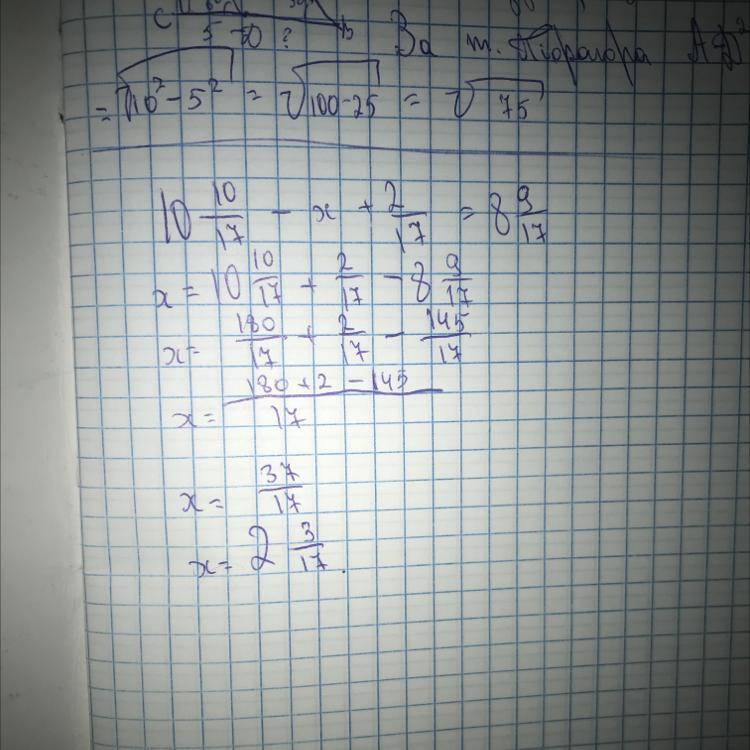 C
5 ? b За т. Піфагора
= √10² - 5² = √100-25 = √75
10 10/17 - x + 2/17 = 8 9/17
x = 10 10/17 + 2/17 - 8 9/17
x = 180/17 + 2/17 - 145/17
x = 180+2-145/17
x = 37/17
x = 2 3/17.